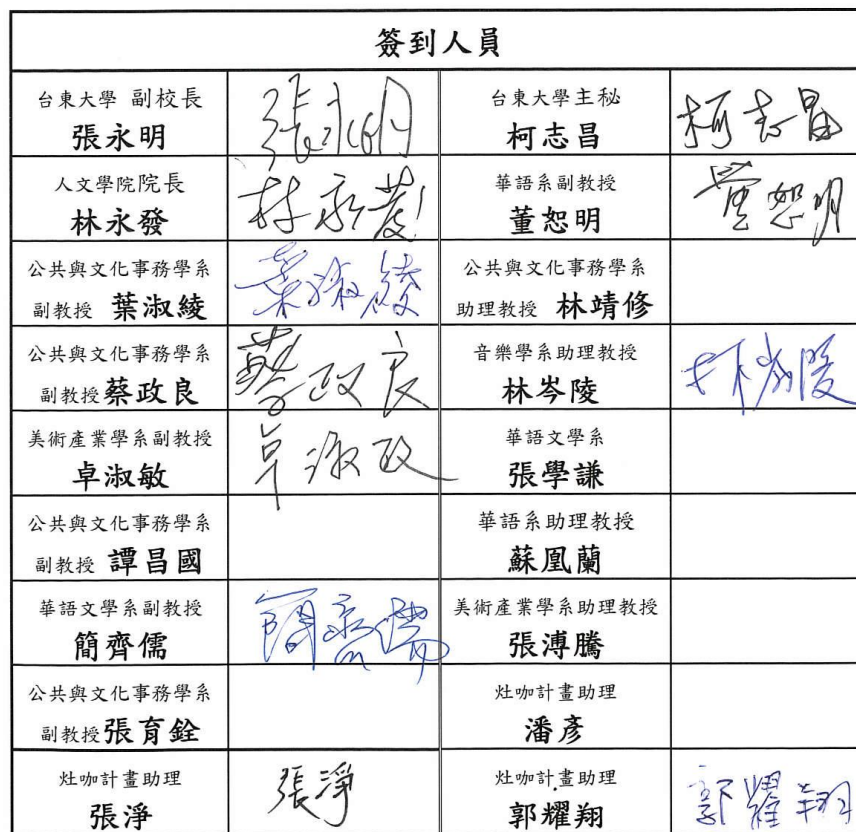 簽到人員
台東大學 副校長
張永明
張永明
台東大學主秘
柯志昌
柯志昌
人文學院院長
林永發
林永發
華語系副教授
董恕明
董恕明
公共與文化事務學系
副教授 葉淑綾
葉淑綾
公共與文化事務學系
助理教授 林靖修
公共與文化事務學系
副教授蔡政良
蔡政良
音樂學系助理教授
林岑陵
林岑陵
美術產業學系副教授
卓淑敏
卓淑敏
華語文學系
張學謙
公共與文化事務學系
副教授 譚昌國
華語系助理教授
蘇凰蘭
華語文學系副教授
簡齊儒
簡齊儒
美術產業學系助理教授
張溥騰
公共與文化事務學系
副教授張育銓
灶咖計畫助理
潘彥
灶咖計畫助理
張淨
張淨
灶咖計畫助理
郭耀翔
郭耀翔